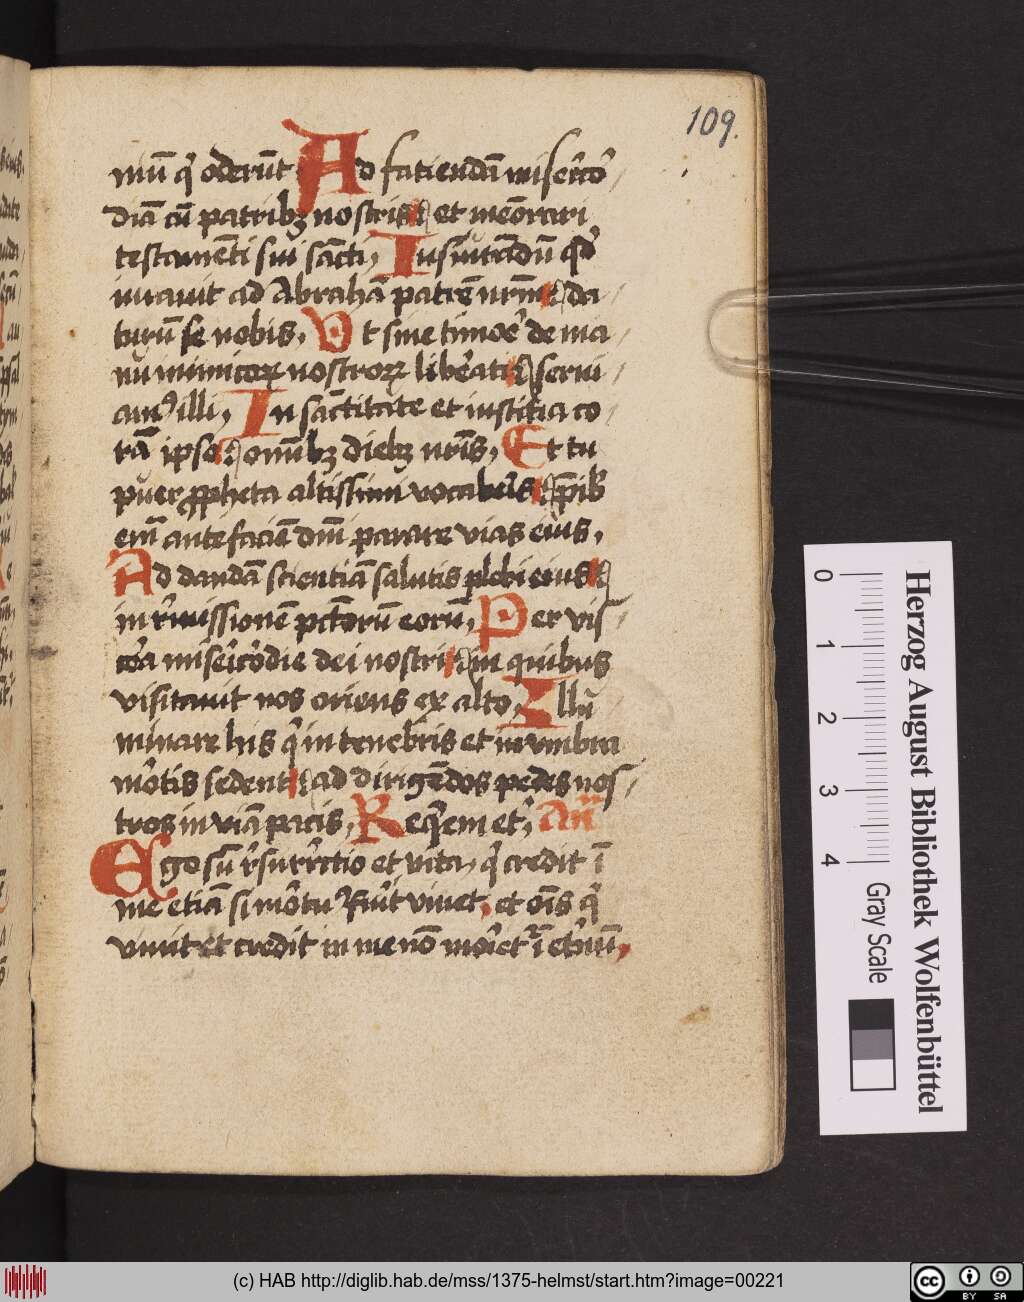 109.
niū q̇ oderūt Ad fatiendā misericor
diā cū patribꝫ nostris et meōrari
testamēti sui sācti, Iusiurādū qd̕
iurauit ad Abrahā patrē nr̄m da
turū se nobis, Vt sine timoe̕ de ma
nu inimicoꝝ nostroꝝ libe̕ati serui
amꝰ illi, In sāctitate et iustitia co
rā ipso omībꝫ diebꝫ nr̄is, Et tu
puer ꝓpheta altissimi vocabe̕is p̄ib̕
eni̅ ante faciē dn̄i parare vias eius,
Ad dandā scientiā salutis plebi eius
in r̕missionē pctorū eorū, Per vis
ce̕a mise̕ico̕die dei nostri in quibus
visitauit nos oriens ex alto, Illu
minare his q̇ in tenebris et in vmbra
mo̕tis sedent ad dirigēdos pedes nos
tros in viā pacis, Req̇em et̕, Añ
Ego su̅ r̕surr̕ctio et vita, q̇ credit ī
me etiā si mo̕tuꝰ fiu̕t viuet, et oīs q̇
viuit et credit in me nō mo̕iet̕ ī et̕nū,
Herzog August Bibliothek Wolfenbüttel
0 1 2 3 4
Gray Scale
(c) HAB http://diglib.hab.de/mss/1375-helmst/start.htm?image=00221
cc BY SA